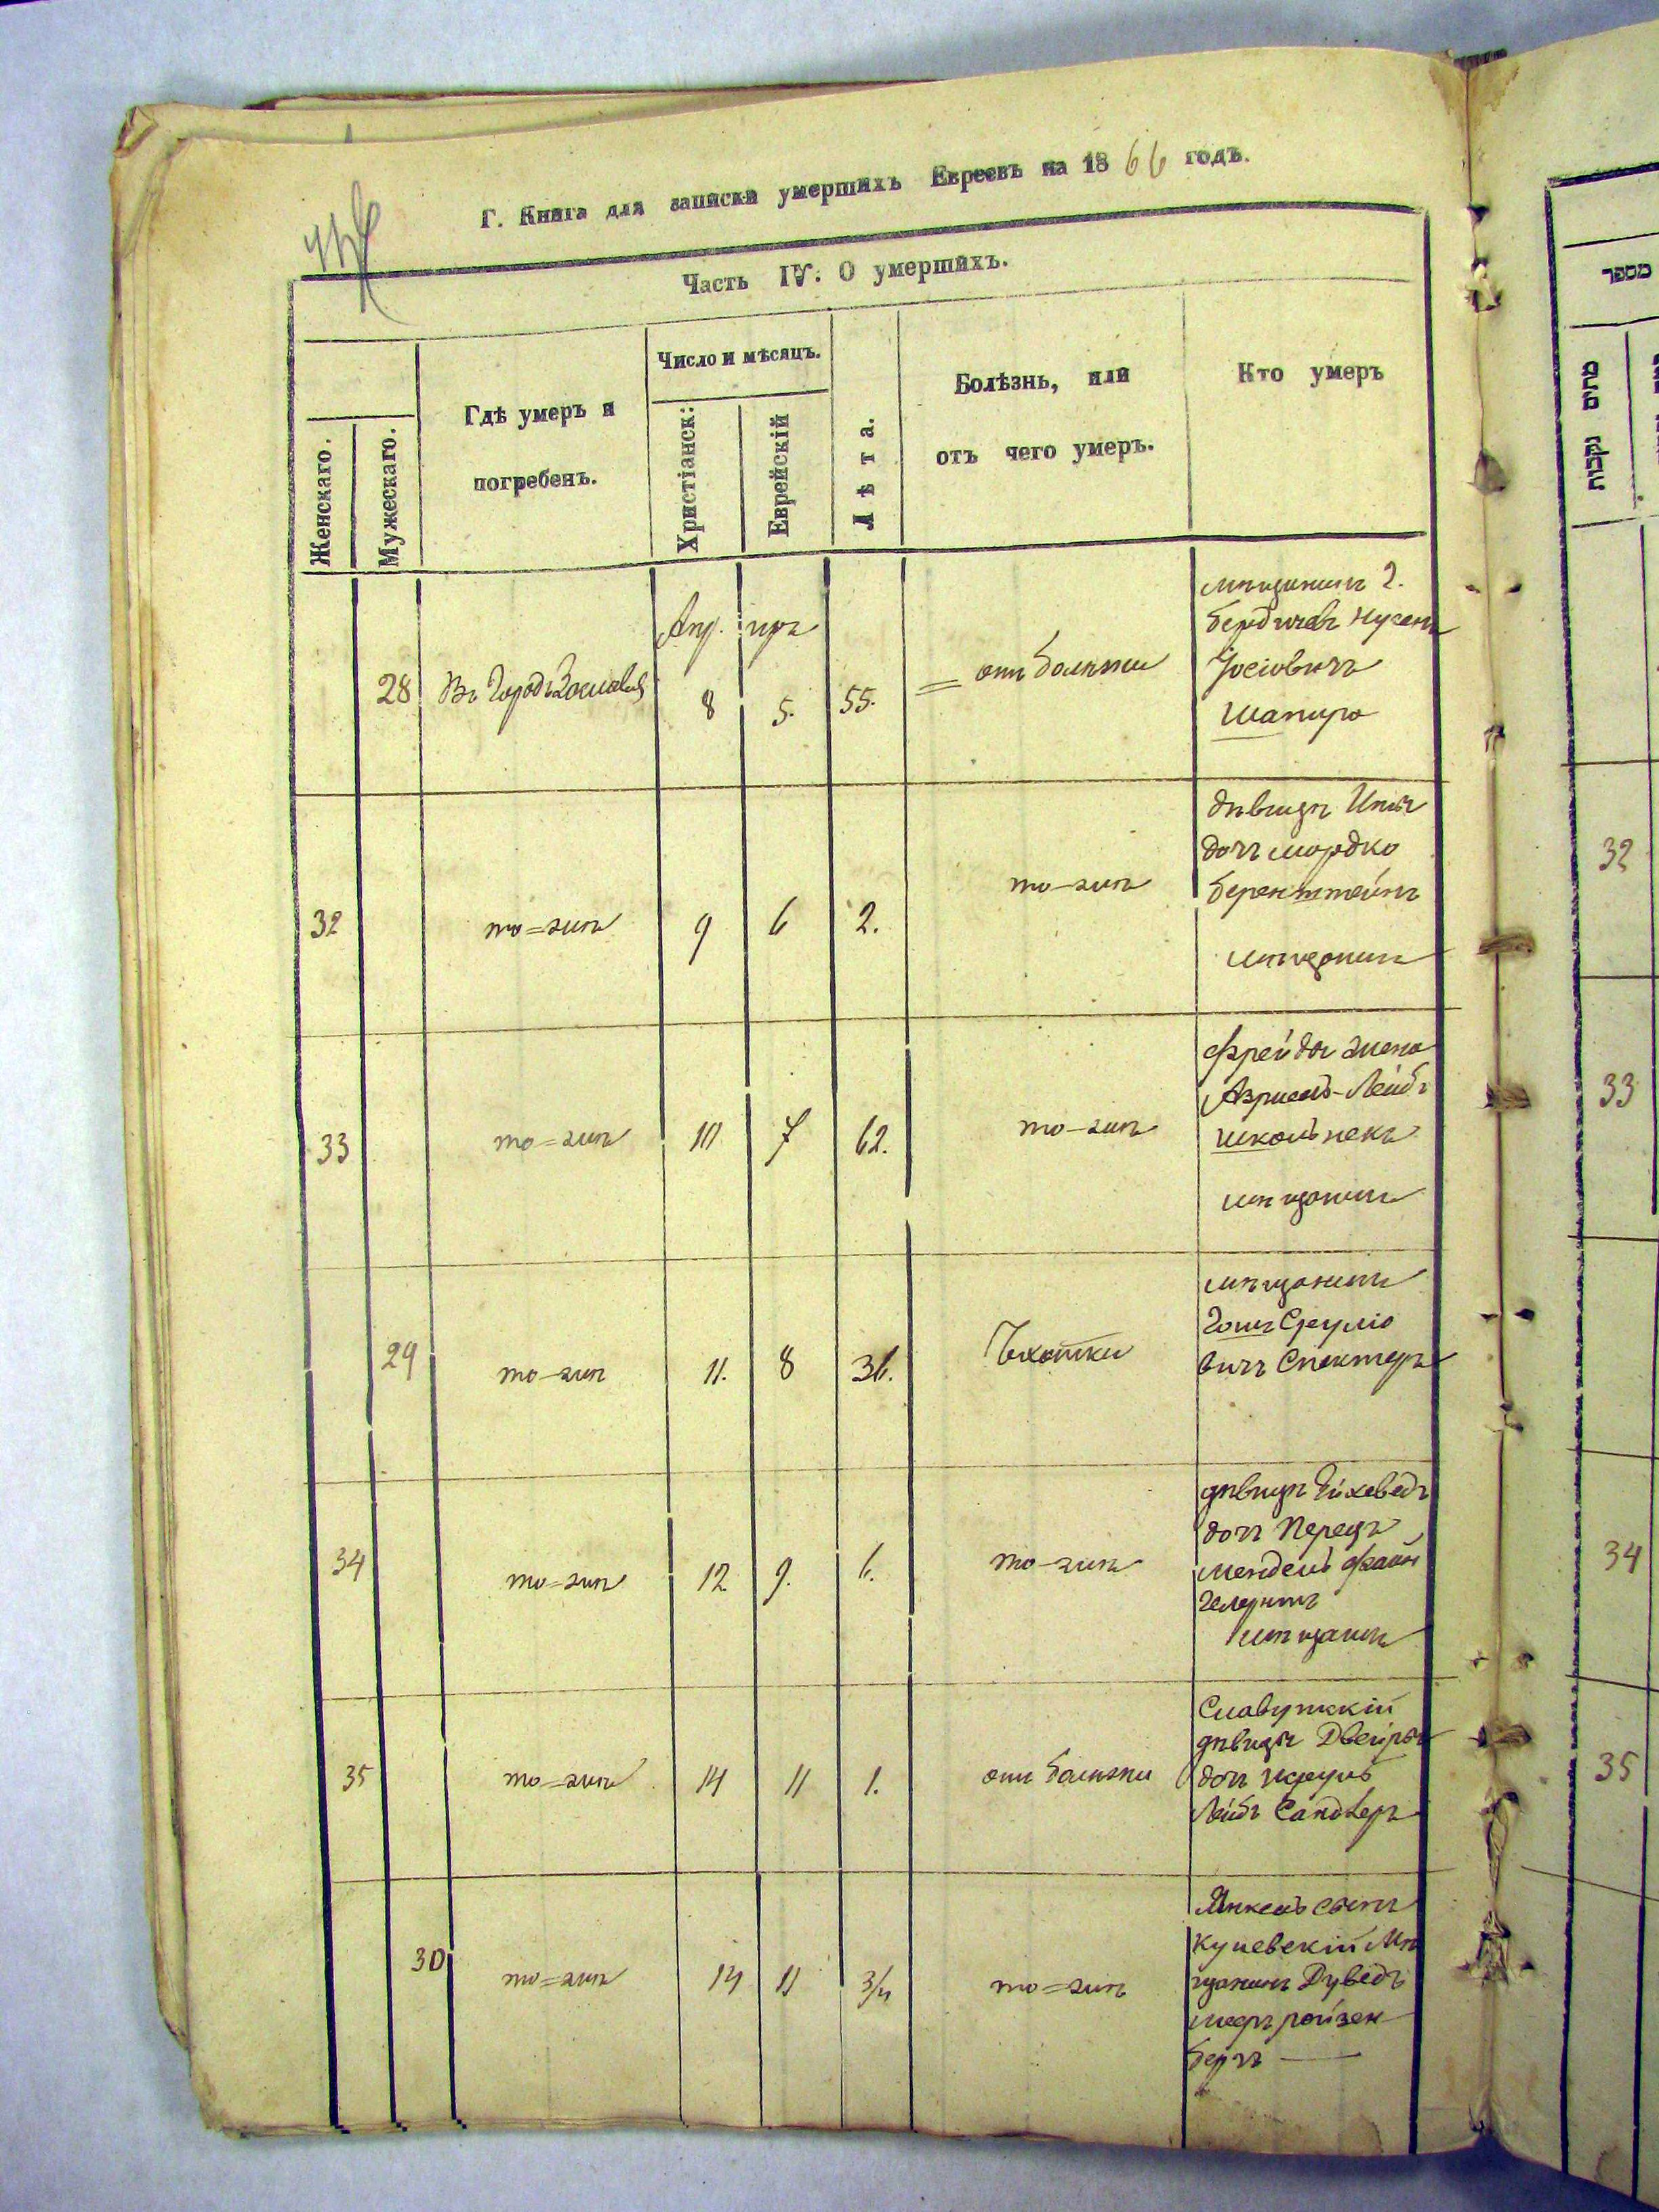 Г. Книга для записки умершихъ Евреевъ на 1866 годъ.
Часть IV. О умершихъ.
Женскаго.
Мужескаго.
Гдѣ умеръ и
погребенъ.
Число и мѣсяцъ.
Христіанск:
Еврейскій
Лѣта.
Болѣзнь, или
отъ чего умеръ.
Кто умеръ
28
Въ Городѣ
Апр.
8
5.
55.
отъ болѣзни
мѣщанинъ г.
Бердичевъ
Іосіовичъ
Шапиро
32
то=жъ
9
6
2.
то-жъ
дѣвица
дочъ Мордко
Беренштейнъ
мѣщанинъ
33
то=жъ
10
7
62.
то-жъ
Фрейда жена
Азріель-Лейбъ
Школьнекъ
мѣщанинъ
29
то-жъ
11.
8
36.
Чехотки
мѣщанинъ
Сруліо
вичъ Спекторъ
34
то=жъ
12
9.
6.
то-жъ
дѣвица
дочъ Перецъ
Мендель
мѣщанинъ
35
то=жъ
14
11
1.
отъ болѣзни
Славутскій
дѣвица Двейра
дочъ Исрулъ
Лейбъ Сандлеръ
30
то=жъ
14
11
3/4
то=жъ
Янкель сынъ
Куневскій Мѣ
щанинъ Дуведъ
Мееръ Ройзен
бергъ
מספר
מתים נקבות
32
33
34
35